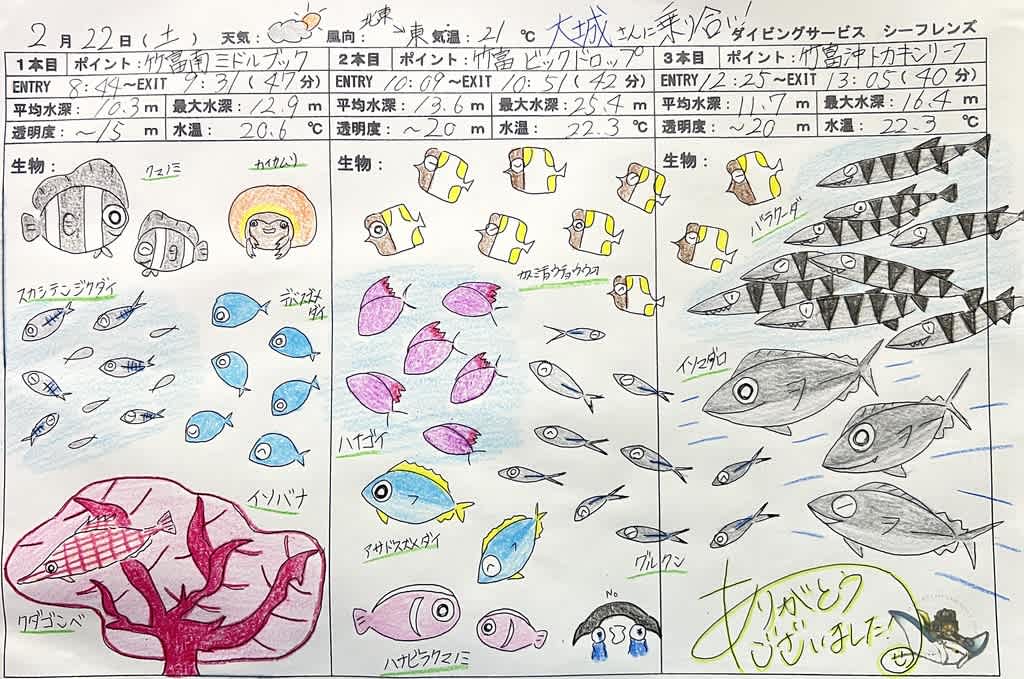 2月22日(土) 天気: 風向: 北東→東 気温: 21℃ 大城さんに乗り合い! ダイビングサービス シーフレンズ
1本目 ポイント: 竹富南ミドルブック
ENTRY 8:44~EXIT 9:31(47分)
平均水深: 10.3m 最大水深: 12.9m
透明度: ~15m 水温: 20.6℃
生物:
クマノミ
カイカムリ
スカシテンジクダイ
デバスズメダイ
イソバナ
クダゴンベ
2本目 ポイント: 竹富ビックドロップ
ENTRY 10:09~EXIT 10:51(42分)
平均水深: 13.6m 最大水深: 25.4m
透明度: ~20m 水温: 22.3℃
生物:
カスミチョウチョウウオ
ハナゴイ
アサドスズメダイ
グルクン
ハナビラクマノミ
No
3本目 ポイント: 竹富沖トカキンリーフ
ENTRY 12:25~EXIT 13:05(40分)
平均水深: 11.7m 最大水深: 16.4m
透明度: ~20m 水温: 22.3℃
生物:
バラクーダ
イソマグロ
ありがとう
ございました!